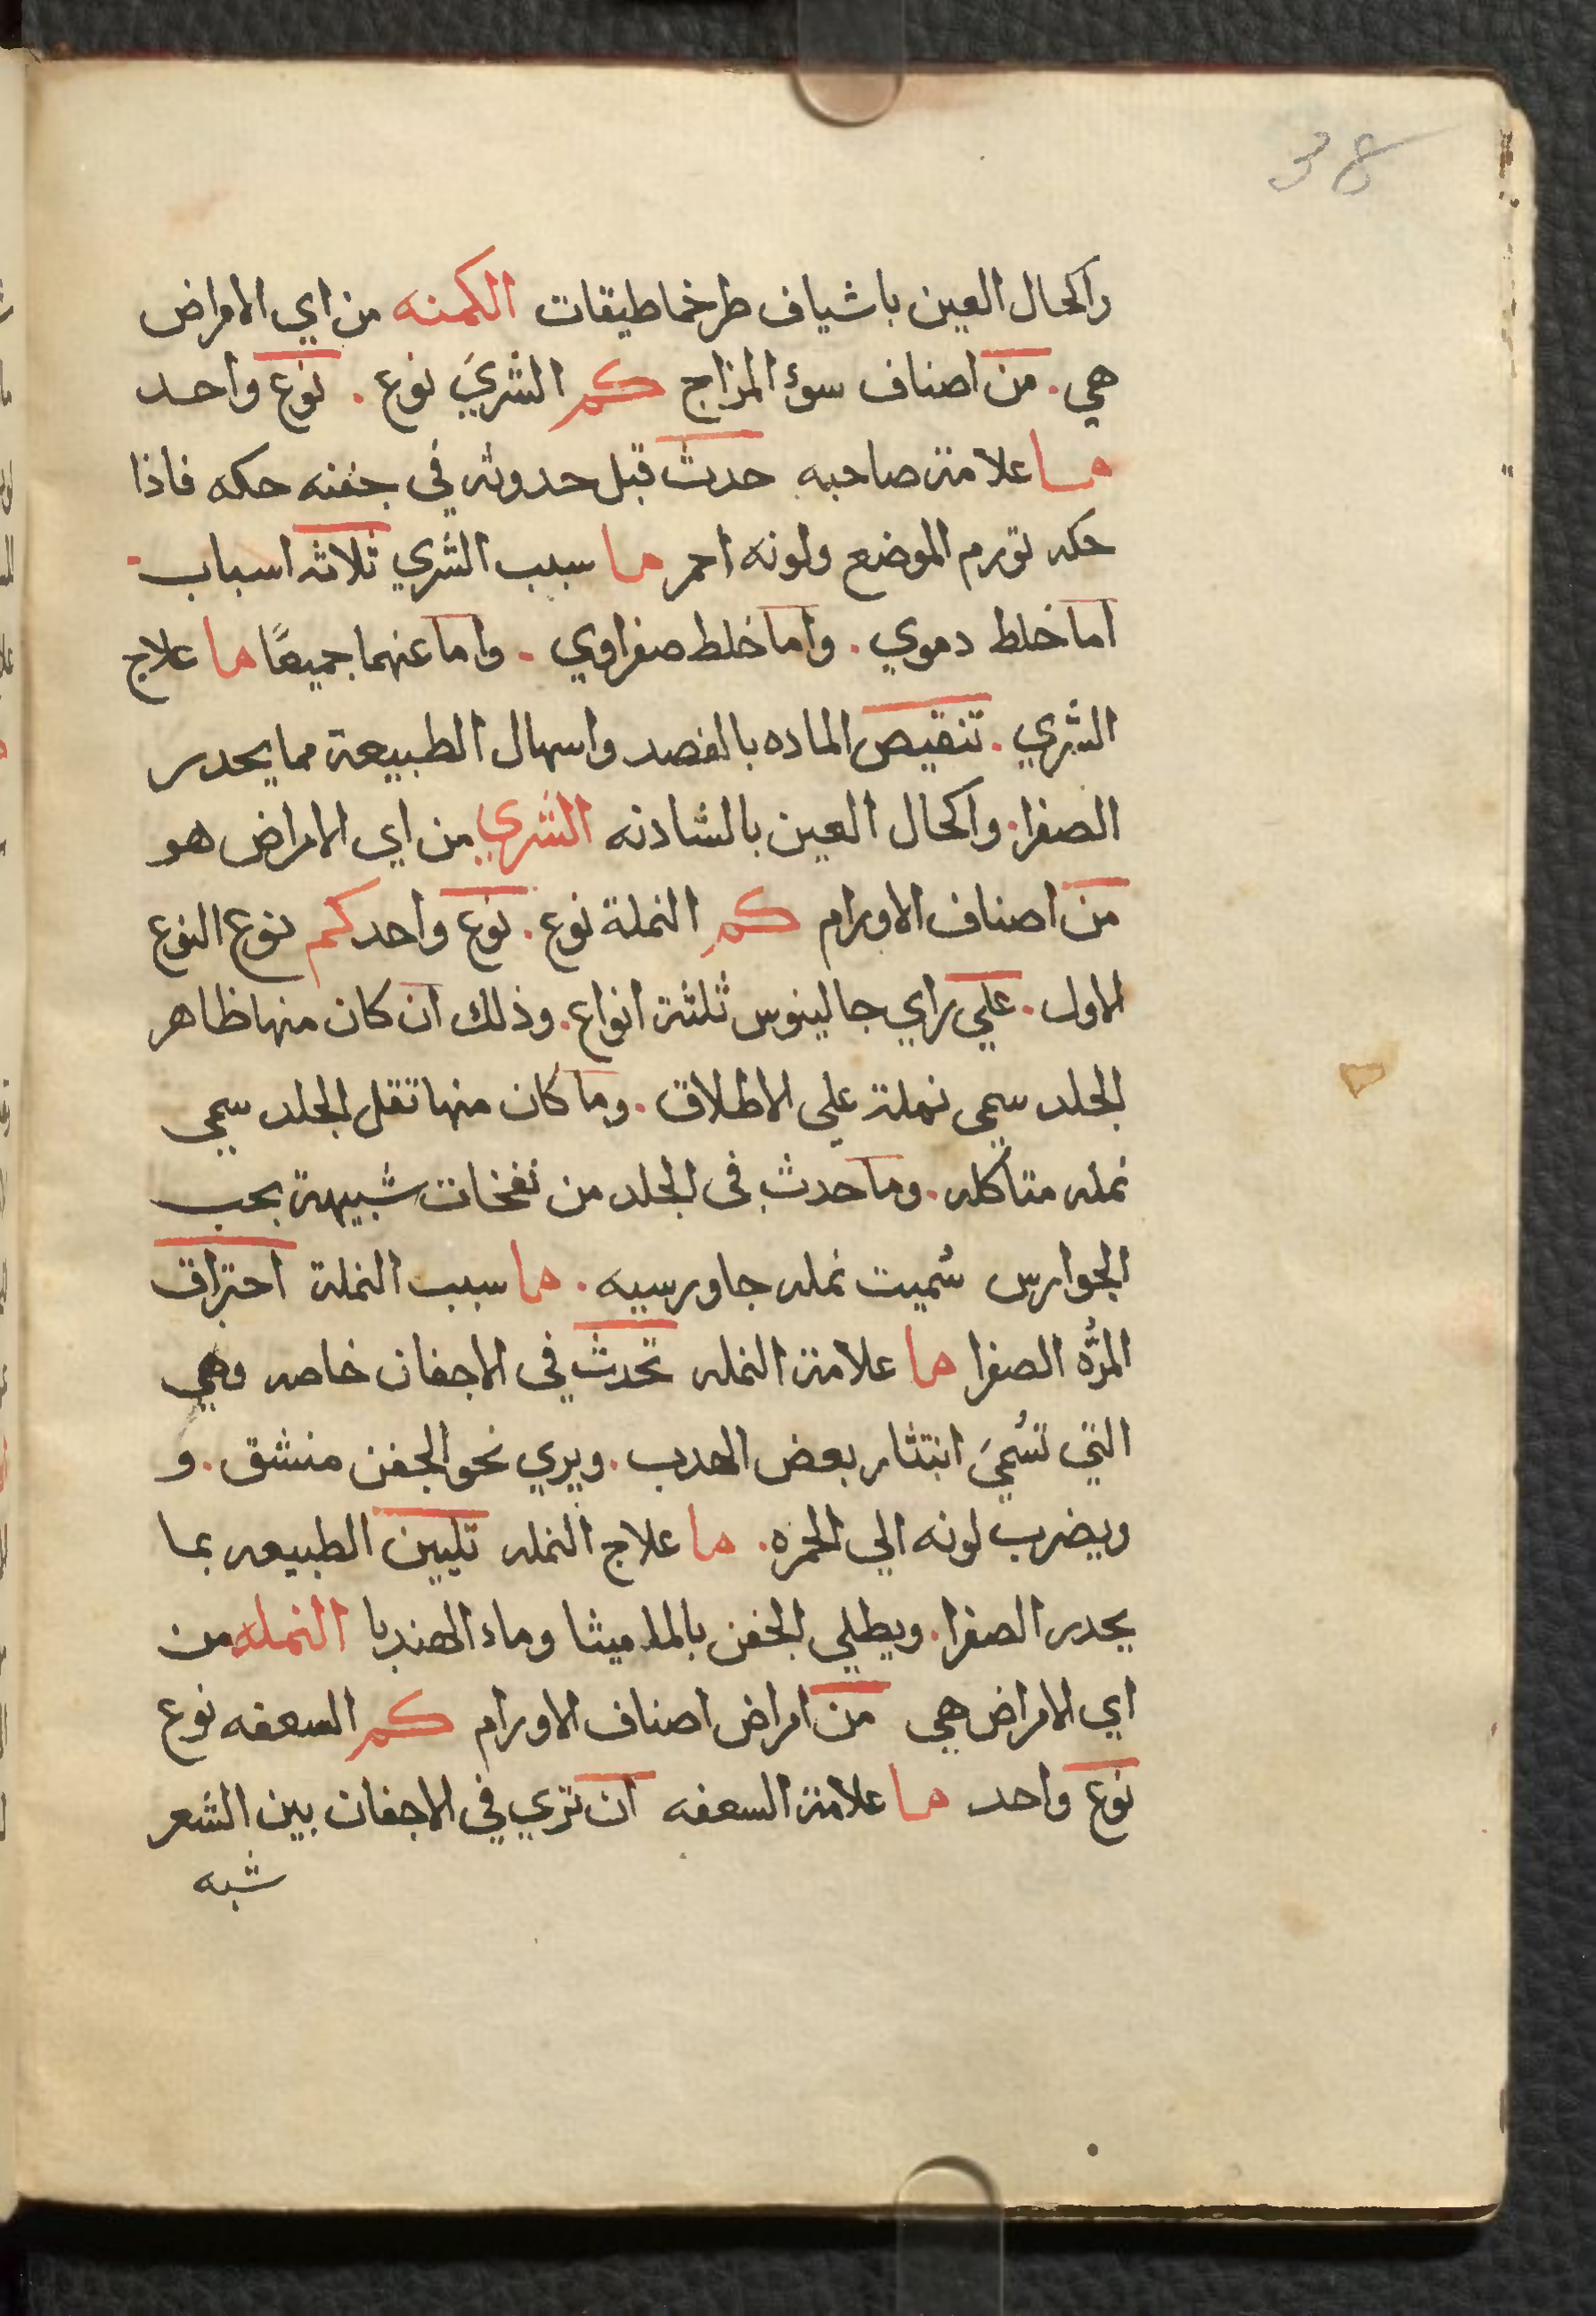 38
واكحال العين باشياف طرخماطيقات الكمنه من اي الامراض
هي . من اصناف سوؤ المزاج كم الشريَ نوع . نوع واحد
ما علامة صاحبه حدث قبل حدوثه في جفنه حكه فاذا
حكه تورم الموضع ولونه احمر ما سبب الشري ثلاثه اسباب
اما خلط دموي . واما خلط صفراوي . واما عنهما جميعًا ما علاج
الشري . تنقيص الماده بالفصد واسهال الطبيعة مما يحدر
الصفرا . واكحال العين بالشادنه الشري من اي الامراض هو
من اصناف الاورام كم النملة نوع . نوع واحد كم نوع النوع
الاول . علي راي جالينوس ثلثة انواع . وذلك ان كان منها ظاهر
الجلد سمي نملة علي الاطلاق . وما كان منها تقل الجلد سمي
نمله متاكله . وما حدث في الجلد من نفخات شبيهة بحب
الجوارس سُميت نمله جاورسيه . ما سبب النملة احتراق
المرُّه الصفرا ما علامة النمله تحدث في الاجفان خاصه وهي
التي تسُميَ انتثار بعض الهدب . ويري نحو الجفن منشق . و
ويضرب لونه الي الحمره . ما علاج النمله تليين الطبيعه بما
يحدر الصفرا . ويطلي الجفن بالماميثا وماء الهندبا النمله من
اي الامراض هي من امراض اصناف الاورام كم السعفه نوع
نوع واحد ما علامة السعفه ان تري في الاجفان بين الشعر
شبه